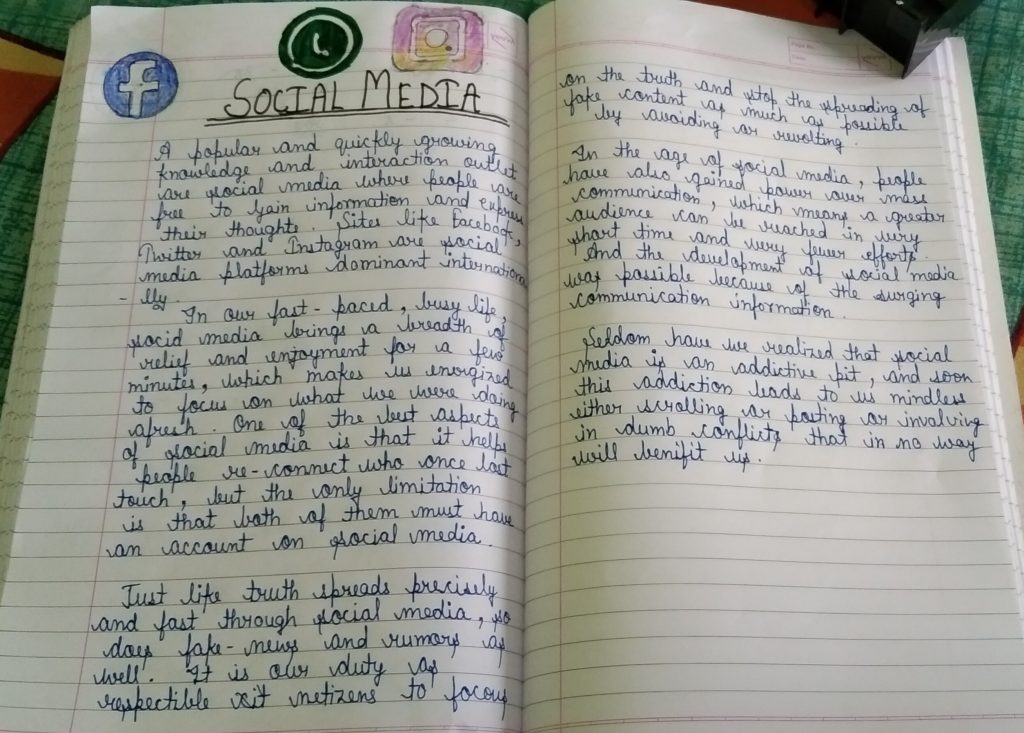 SOCIAL MEDIA
A popular and quickly growing
knowledge and interaction outlet
are social media where people are
free to gain information and express
their thoughts. Sites like Facebook,
Twitter and Instagram are social
media platforms dominant internationa
- lly.
In our fast-paced, busy life,
socid media brings a breadth of
relief and enjoyment for a few
minutes, which makes us energized
to focus on what we were doing
afresh. One of the best aspects
of social media is that it helps
people re-connect who once lost
touch, but the only limitation
is that both of them must have
an account on social media.
Just like truth spreads precisely
and fast through social media, so
does fake-news and rumors as
well. It is our duty as
respectible netizens to focous
on the truth and stop the spreading of
fake content as much as possible
by avoiding or revolting.
In the age of social media, people
have also gained power over mass
communication, which means a greater
audience can be reached in very
short time and very fewer efforts.
And the development of social media
was possible because of the surging
communication information.
Seldom have we realized that social
media is an addictive pit, and soon
this addiction leads to us mindless
either scrolling or posting or involving
in dumb conflicts that in no way
will benifit us.